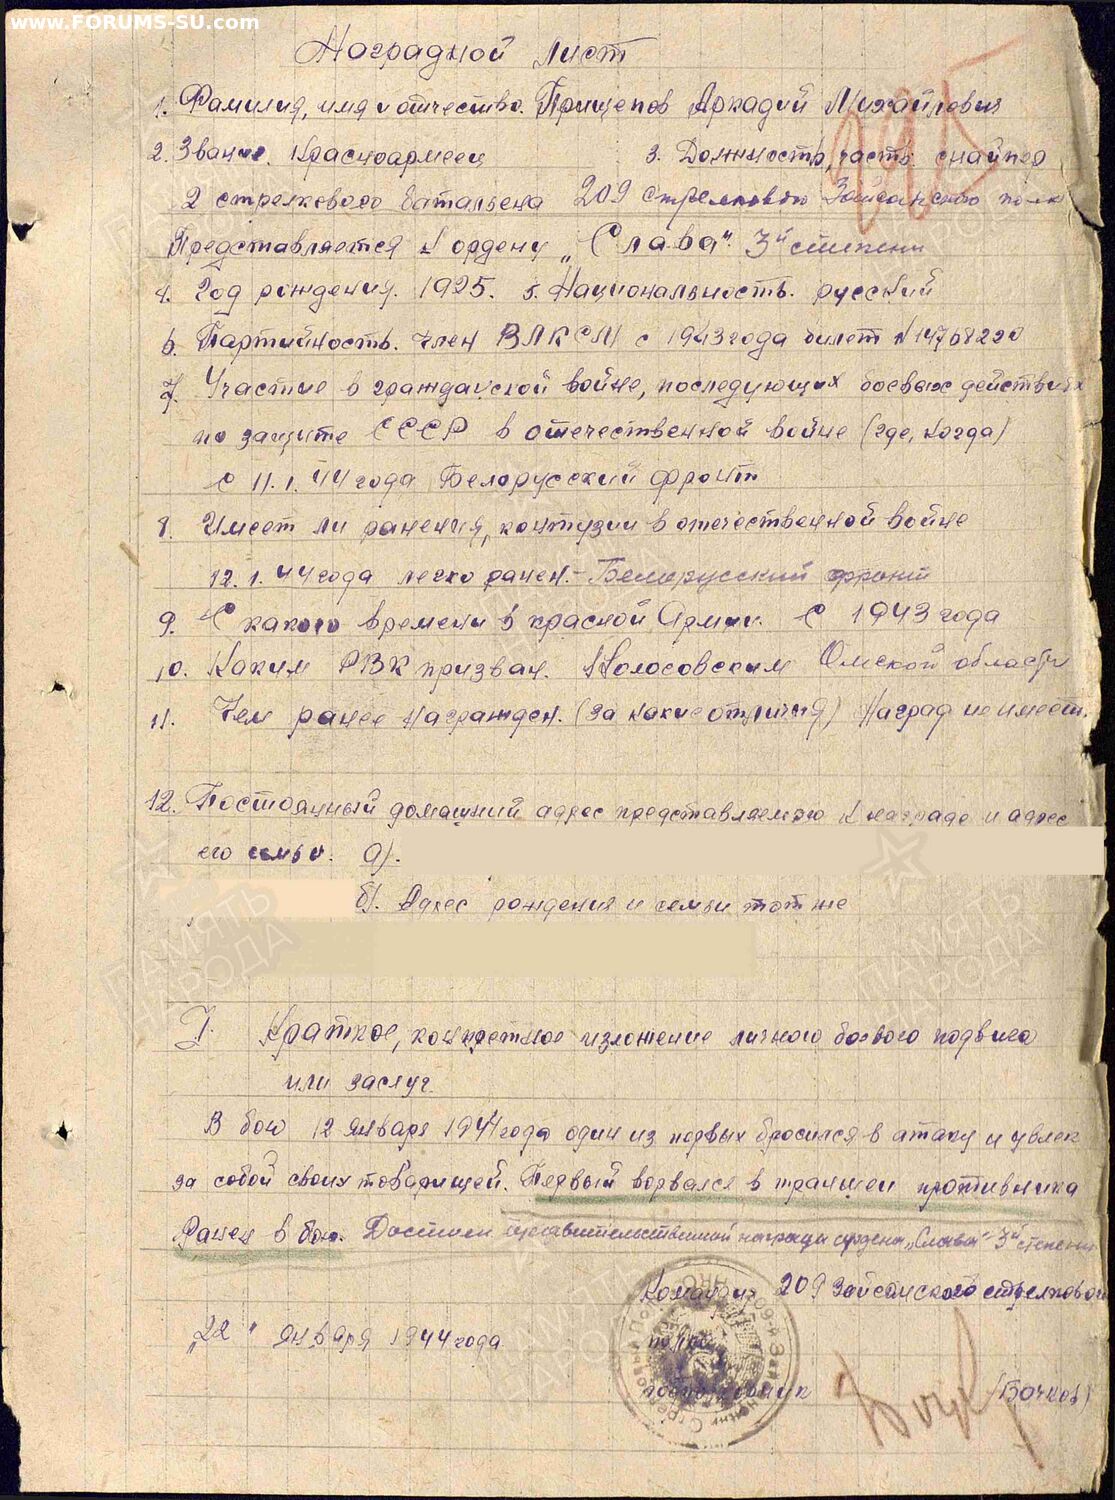 www.FORUMS-SU.com
Наградной лист
1. Фамилия, имя и отчество. Прищепов Аркадий Михайлович
2. Звание. Красноармеец 3. Должность, часть. снайпер
2 стрелкового батальена 209 стрелкового Зайсанского полка
Представляется к ордену „Слава" 3й степени
4. Год рождения. 1925. 5. Национальность. русский
6. Партийность. член ВЛКСМ с 1943 года билет №14768220
7. Участие в гражданской войне, последующих боевых действиях
по защите СССР в отечественной войне (где, когда)
с 11.1.44 года Белорусский фронт
8. Имеет ли ранения, контузии в отечественной войне
12.1.44 года легко ранен. - Белорусский фронт
9. С какого времени в красной Армии. С 1943 года
10. Каким РВК призван. Колосовским Омской области
11. Чем ранее награжден. (за какие отличия) Наград не имеет.
12. Постоянный домашний адрес представляемого к награде и адрес
его семьи. а).
б). Адрес рождения и семьи тот же
I. Краткое, конкретное изложение личного боевого подвига
или заслуг.
В бою 12 января 1944 года один из первых бросился в атаку и увлек
за собой своих товарищей. Первый ворвался в траншеи противника
Ранен в бою. Достоин правительственной награды ордена „Слава" 3й степени
Командир 209 Зайсанского стрелкового
полка
подполковник (Бочков)
„22" января 1944 года
ПАМЯТЬ НАРОДА